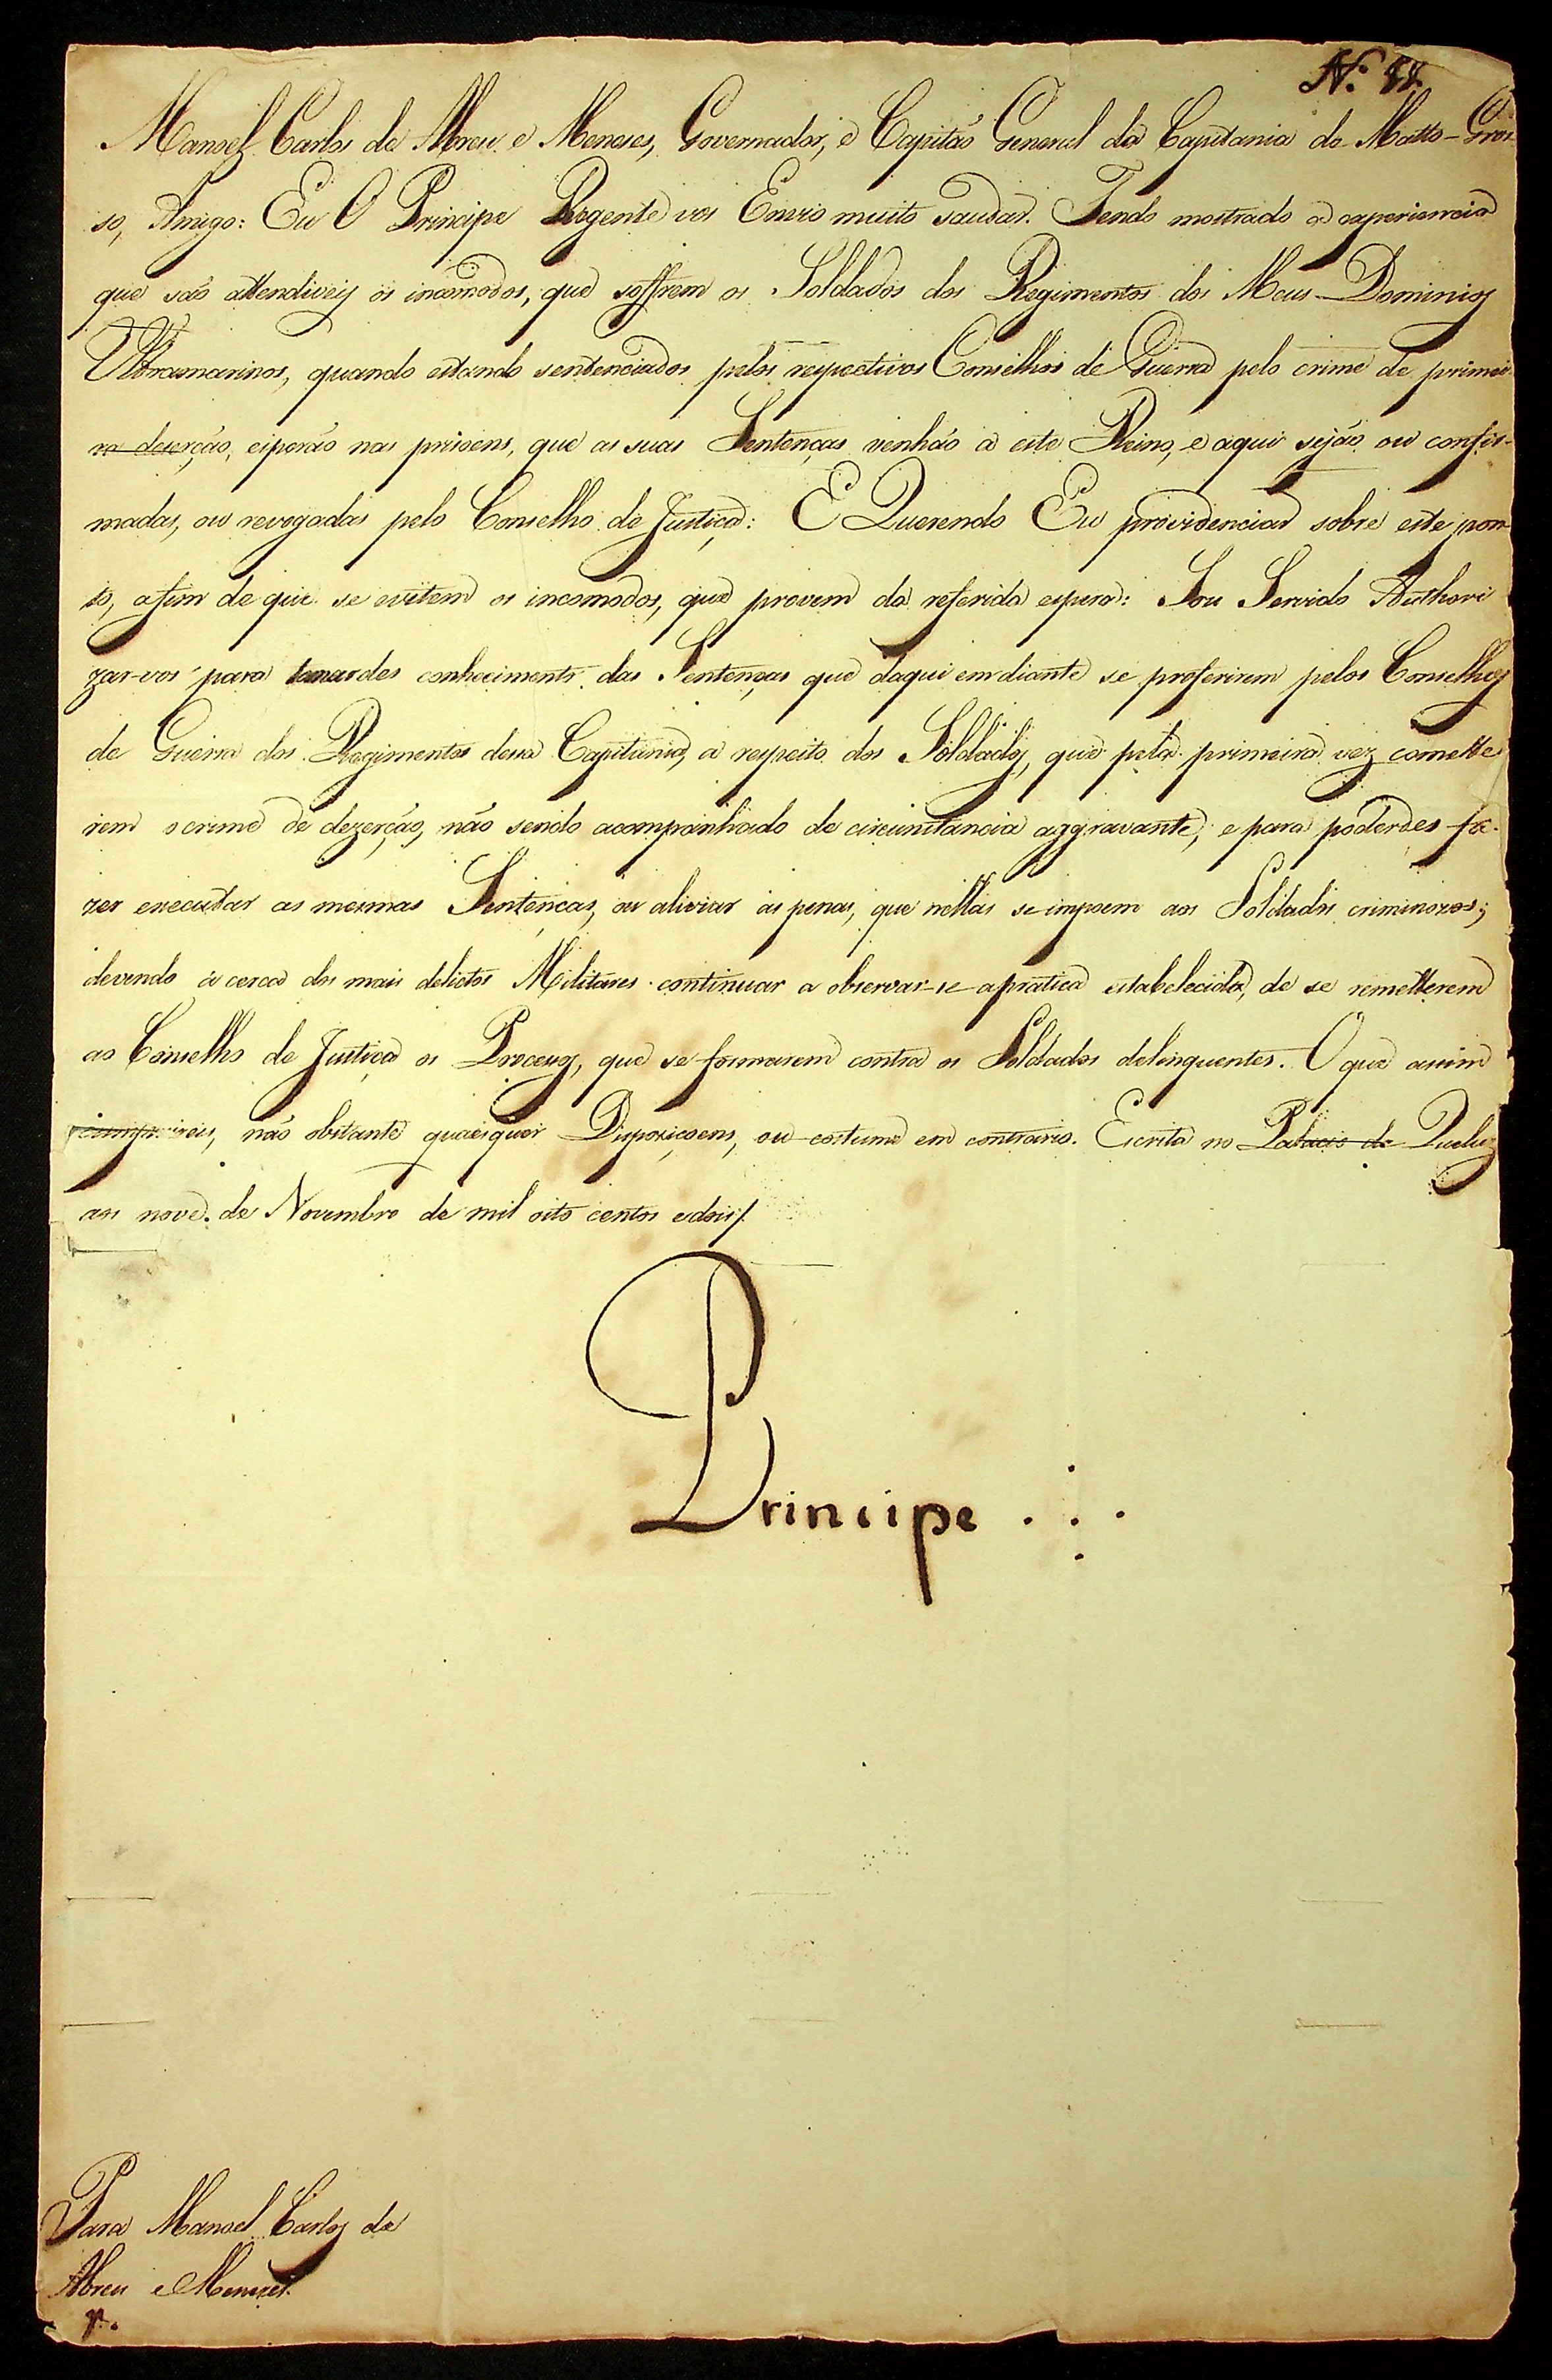 N.º 88.
Manoel Carlos de Abreu e Meneses, Governador, e Capitaõ General da Capitania de Matto-Gros-
so, Amigo: Eu O Principe Regente vos Envio muito saudar. Tendo mostrado a experiencia
que saõ attendiveis os incomodos, que soffrem os Soldados dos Regimentos dos Meus Dominios
Ultramarinos, quando estando sentenciados pelos respectivos Conselhos de Guerra pelo crime de primei-
ra deserçaõ, esperaõ nas prisoens, que as suas Sentenças venhaõ a este Reino, e aqui sejaõ ou confir-
madas, ou revogadas pelo Conselho de Justiça: E Querendo Eu providenciar sobre este pon-
to, afim de que se evitem os incomodos, que provem da referida espera: Sou Servido Authori
zar-vos para tomardes conhecimento das Sentenças que daqui em diante se proferirem pelos Conselhos
de Guerra dos Regimentos dessa Capitania, a respeito dos Soldados, que pela primeira vez comette
rem o crime de dezerçaõ, naõ sendo acompanhado de circunstancia aggravante; e para poderdes fa-
zer executar as mesmas Sentenças, ou aliviar as penas, que nellas se impoem aos Soldados criminozos;
devendo á cerca dos mais delictos Militares continuar a observar-se a pratica estabelecida, de se remetterem
ao Conselho de Justiça os Processos, que se formarem contra os Soldados delinquentes. O que assim
cumprireis, naõ obstante quaesquer Disposiçoens, ou costume em contrario. Escrita no Palacio de Queluz
aos nove de Novembro de mil oito centos e dois/.
Principe . : .
Para Manoel Carlos de
Abreu e Menezes.